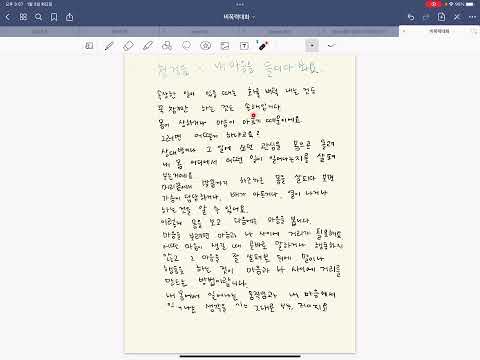 오후 3:07 1월 3일 화요일
90%
비폭력대화
비폭력대화
첫걸음 × 내 마음을 들여다봐요.
속상한 일이 있을 때는 화를 버럭 내는 것도
꾹 참기만 하는 것도 손해입니다
몸이 상하거나 마음이 아프기 때문이에요
그러면 어떻게 하냐고요?
상대방이나 그 일에 쓰던 관심을 몸으로 돌려
내 몸 어디에서 어떤 일이 일어나는지를 살펴
보는거예요
머리끝에서 발끝까지 천천히 몸을 살피다 보면
가슴이 답답하거나, 배가 아프거나, 열이 나거나
하는 것을 알 수 있어요.
이렇게 몸을 보고 다음에는 마음을 봅니다.
마음을 보려면 마음과 나 사이에 거리가 필요해요
어떤 마음이 생길 때 곧바로 말하거나 행동하지
않고 그 마음을 잘 살펴본 뒤에 말이나
행동을 하는 것이 마음과 나 사이에 거리를
만드는 방법이랍니다.
내 몸에서 일어나는 움직임과 내 마음에서
일어나는 생각을 있는 그대로 보는